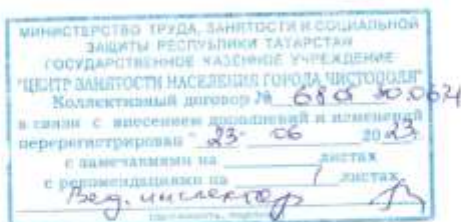 МИНИСТЕРСТВО ТРУДА, ЗАНЯТОСТИ И СОЦИАЛЬНОЙ
ЗАЩИТЫ РЕСПУБЛИКИ ТАТАРСТАН
ГОСУДАРСТВЕННОЕ КАЗЕННОЕ УЧРЕЖДЕНИЕ
"ЦЕНТР ЗАНЯТОСТИ НАСЕЛЕНИЯ ГОРОДА ЧИСТОПОЛЯ"
Коллективный договор №
в связи с внесением дополнений и изменений
перерегистрирован "23" 06 2023
с замечаниями на листах
с рекомендациями на листах
Вед. инспектор